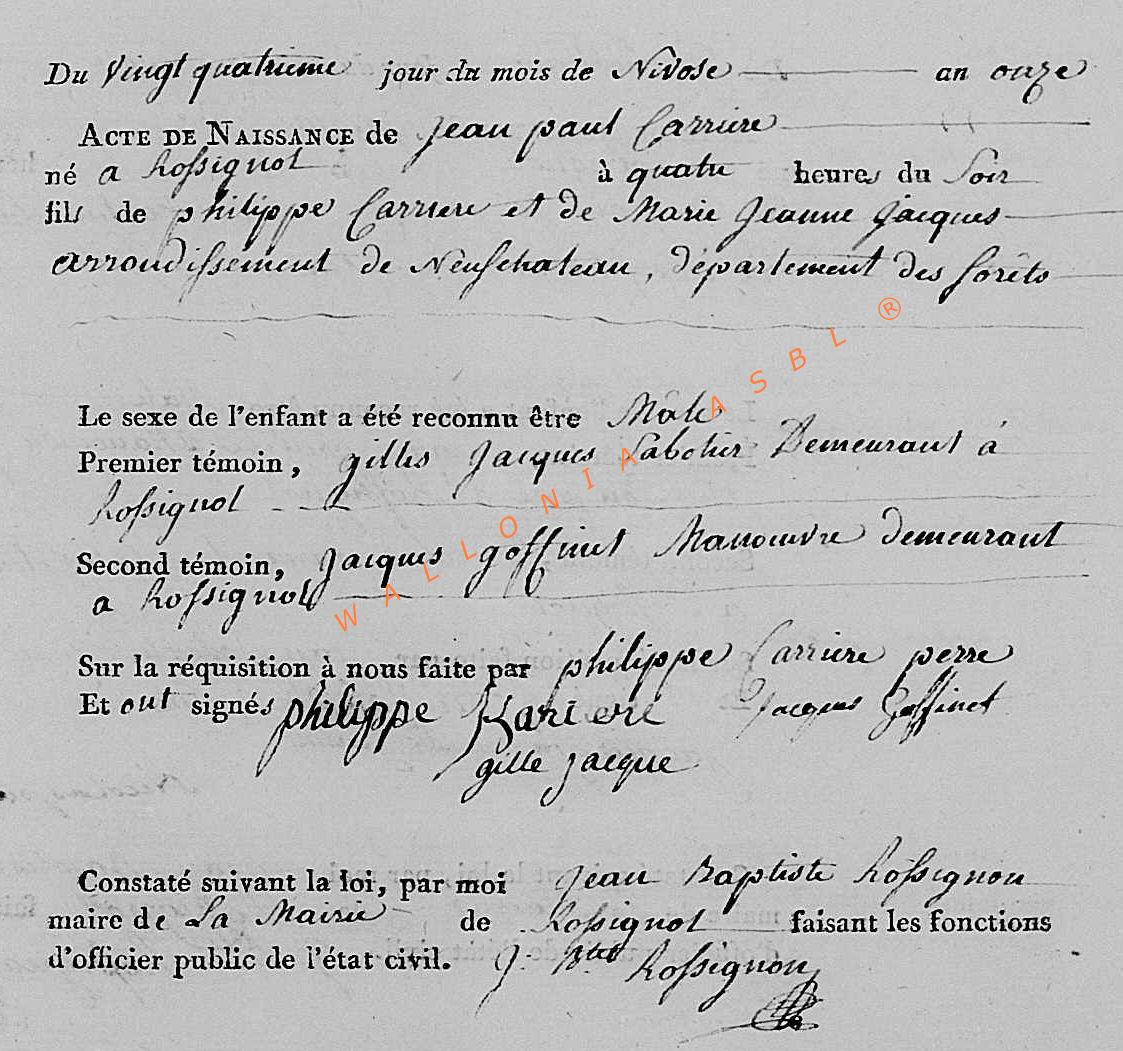 Du Vingt quatrieme jour du mois de Nivose an onze
ACTE DE NAISSANCE de Jean paul Carriere
né a Rossignol à quatre heures du Soir
fils de philippe Carriere et de Marie Jeanne Jacques
arrondissement de Neufchateau, département des forêts
Le sexe de l'enfant a été reconnu être Mâle
Premier témoin, gilles Jacques Sabotier Demeurant à
Rossignol
Second témoin, Jacques goffinet Manoeuvre demeurant
a Rossignol
Sur la réquisition à nous faite par philippe Carriere perre
Et ont signés philippe Kariere Jacques Goffinet
gille jacque
Constaté suivant la loi, par moi Jean Baptiste Rossignon
maire de La Mairie de Rossignol faisant les fonctions
d'officier public de l'état civil. J. Btet Rossignon
WALLONIA ASBL ®